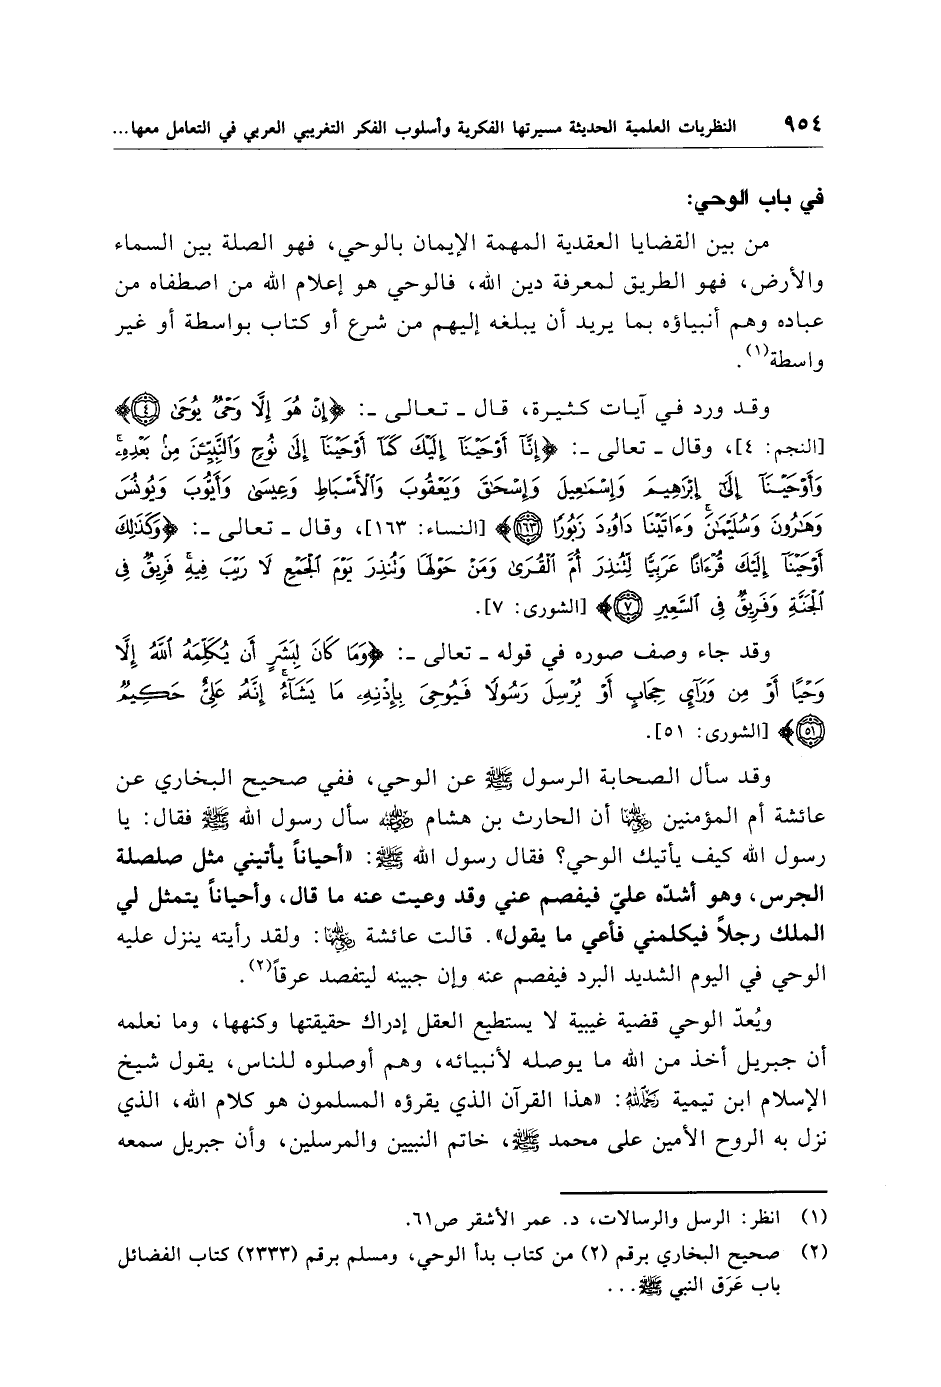 ٩٥٤ النظريات العلمية الحديثة مسيرتها الفكرية وأسلوب الفكر التغريبي العربي في التعامل معها...
في باب الوحي:
من بين القضايا العقدية المهمة الإيمان بالوحي، فهو الصلة بين السماء
والأرض، فهو الطريق لمعرفة دين الله، فالوحي هو إعلام الله من اصطفاه من
عباده وهم أنبياؤه بما يريد أن يبلغه إليهم من شرع أو كتاب بواسطة أو غير
واسطة(١).
وقد ورد في آيات كثيرة، قال ـ تعالى ـ: ﴿إِنْ هُوَ إِلَّا وَحْىٌ يُوحَىٰ ٤﴾
[النجم: ٤]، وقال ـ تعالى ـ: ﴿إِنَّآ أَوْحَيْنَآ إِلَيْكَ كَمَآ أَوْحَيْنَآ إِلَىٰ نُوحٍ وَٱلنَّبِيِّـۧنَ مِنۢ بَعْدِهِۦۚ
وَأَوْحَيْنَآ إِلَىٰٓ إِبْرَٰهِيمَ وَإِسْمَٰعِيلَ وَإِسْحَٰقَ وَيَعْقُوبَ وَٱلْأَسْبَاطِ وَعِيسَىٰ وَأَيُّوبَ وَيُونُسَ
وَهَٰرُونَ وَسُلَيْمَٰنَۚ وَءَاتَيْنَا دَاوُۥدَ زَبُورًا ١٦٣﴾ [النساء: ١٦٣]، وقال ـ تعالى ـ: ﴿وَكَذَٰلِكَ
أَوْحَيْنَآ إِلَيْكَ قُرْءَانًا عَرَبِيًّا لِّتُنذِرَ أُمَّ ٱلْقُرَىٰ وَمَنْ حَوْلَهَا وَتُنذِرَ يَوْمَ ٱلْجَمْعِ لَا رَيْبَ فِيهِۚ فَرِيقٌ فِى
ٱلْجَنَّةِ وَفَرِيقٌ فِى ٱلسَّعِيرِ ٧﴾ [الشورى: ٧].
وقد جاء وصف صوره في قوله ـ تعالى ـ: ﴿وَمَا كَانَ لِبَشَرٍ أَن يُكَلِّمَهُ ٱللَّهُ إِلَّا
وَحْيًا أَوْ مِن وَرَآئِ حِجَابٍ أَوْ يُرْسِلَ رَسُولًا فَيُوحِىَ بِإِذْنِهِۦ مَا يَشَآءُۚ إِنَّهُۥ عَلِىٌّ حَكِيمٌ
٥١﴾ [الشورى: ٥١].
وقد سأل الصحابة الرسول ﷺ عن الوحي، ففي صحيح البخاري عن
عائشة أم المؤمنين رضي الله عنها أن الحارث بن هشام رضي الله عنه سأل رسول الله ﷺ فقال: يا
رسول الله كيف يأتيك الوحي؟ فقال رسول الله ﷺ: «أحياناً يأتيني مثل صلصلة
الجرس، وهو أشدّه عليّ فيفصم عني وقد وعيت عنه ما قال، وأحياناً يتمثل لي
الملك رجلاً فيكلمني فأعي ما يقول». قالت عائشة رضي الله عنها: ولقد رأيته ينزل عليه
الوحي في اليوم الشديد البرد فيفصم عنه وإن جبينه ليتفصد عرقاً(٢).
ويُعدّ الوحي قضية غيبية لا يستطيع العقل إدراك حقيقتها وكنهها، وما نعلمه
أن جبريل أخذ من الله ما يوصله لأنبيائه، وهم أوصلوه للناس، يقول شيخ
الإسلام ابن تيمية رحمه الله: «هذا القرآن الذي يقرؤه المسلمون هو كلام الله، الذي
نزل به الروح الأمين على محمد ﷺ، خاتم النبيين والمرسلين، وأن جبريل سمعه
(١) انظر: الرسل والرسالات، د. عمر الأشقر ص٦١.
(٢) صحيح البخاري برقم (٢) من كتاب بدأ الوحي، ومسلم برقم (٢٣٣٣) كتاب الفضائل
باب عَرَق النبي ﷺ...